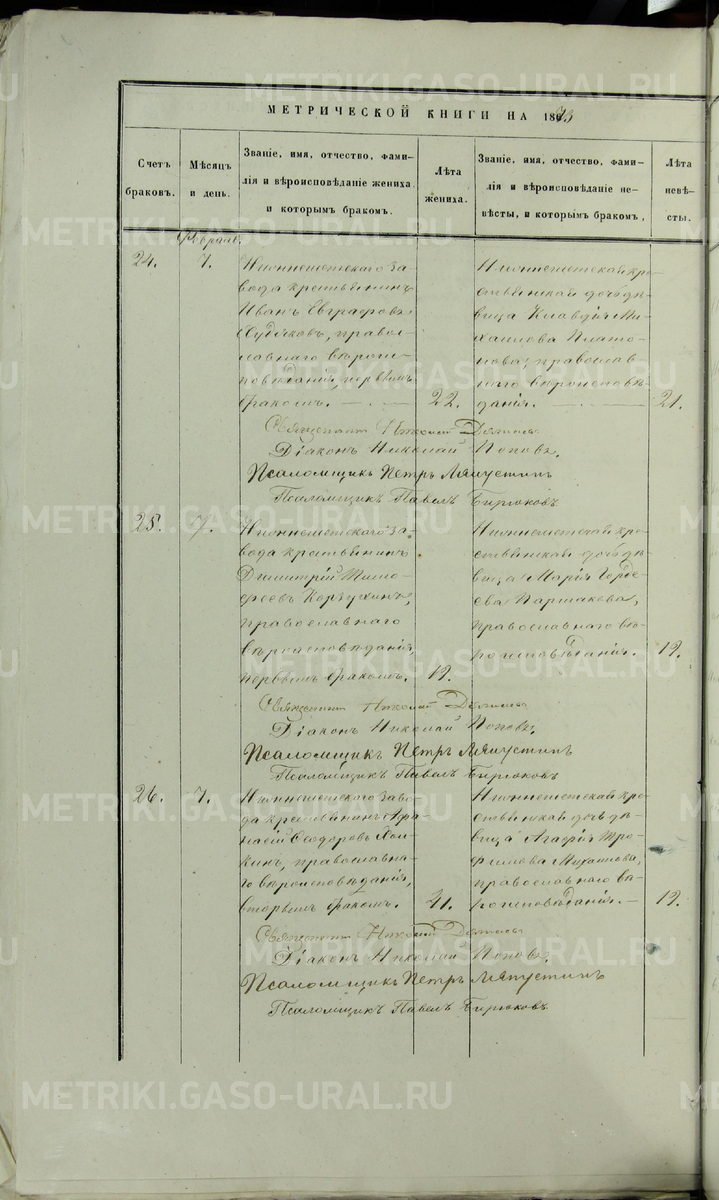 МЕТРИЧЕСКОЙ КНИГИ НА 1873
Счетъ браковъ.
Мѣсяцъ и день.
Званіе, имя, отчество, фами-
лія и вѣроисповѣданіе жениха
и которымъ бракомъ.
Лѣта жениха.
Званіе, имя, отчество, фами-
лія и вѣроисповѣданіе не-
вѣсты, и которымъ бракомъ,
Лѣта невѣ-
сты.
Февраль.
24.
7.
завода крестьянинъ
Иванъ Евграфовъ
православнаго вѣроис-
повѣданія, первымъ
бракомъ.
22.
кре-
стьянская дочь дѣ-
вица Клавдія Ми-
хаилова Плато-
нова, православ-
наго вѣроисповѣ-
данія.
21.
Священникъ Николай
Діаконъ Николай Поповъ.
Псаломщикъ Петръ Ляпустинъ
Псаломщикъ Павелъ Бирюковъ
25.
7.
за-
вода крестьянинъ
Димитрій Тимо-
феевъ Корзухинъ,
православнаго
вѣроисповѣданія,
первымъ бракомъ.
19.
кре-
стьянская дочь дѣ-
вица Марія Горде-
ева Паршакова,
православнаго вѣ-
роисповѣданія.
19.
Священникъ Николай
Діаконъ Николай Поповъ,
Псаломщикъ Петръ Ляпустинъ
Псаломщикъ Павелъ Бирюковъ
26.
7.
заво-
да крестьянинъ Афа-
насій Феодоровъ
православна-
го вѣроисповѣданія,
вторымъ бракомъ.
21.
кре-
стьянская дочь дѣ-
вица Агафія Тро-
фимова Михайлова,
православнаго вѣ-
роисповѣданія.
19.
Священникъ Николай
Діаконъ Николай Поповъ,
Псаломщикъ Петръ Ляпустинъ
Псаломщикъ Павелъ Бирюковъ
METRIKI.GASO-URAL.RU